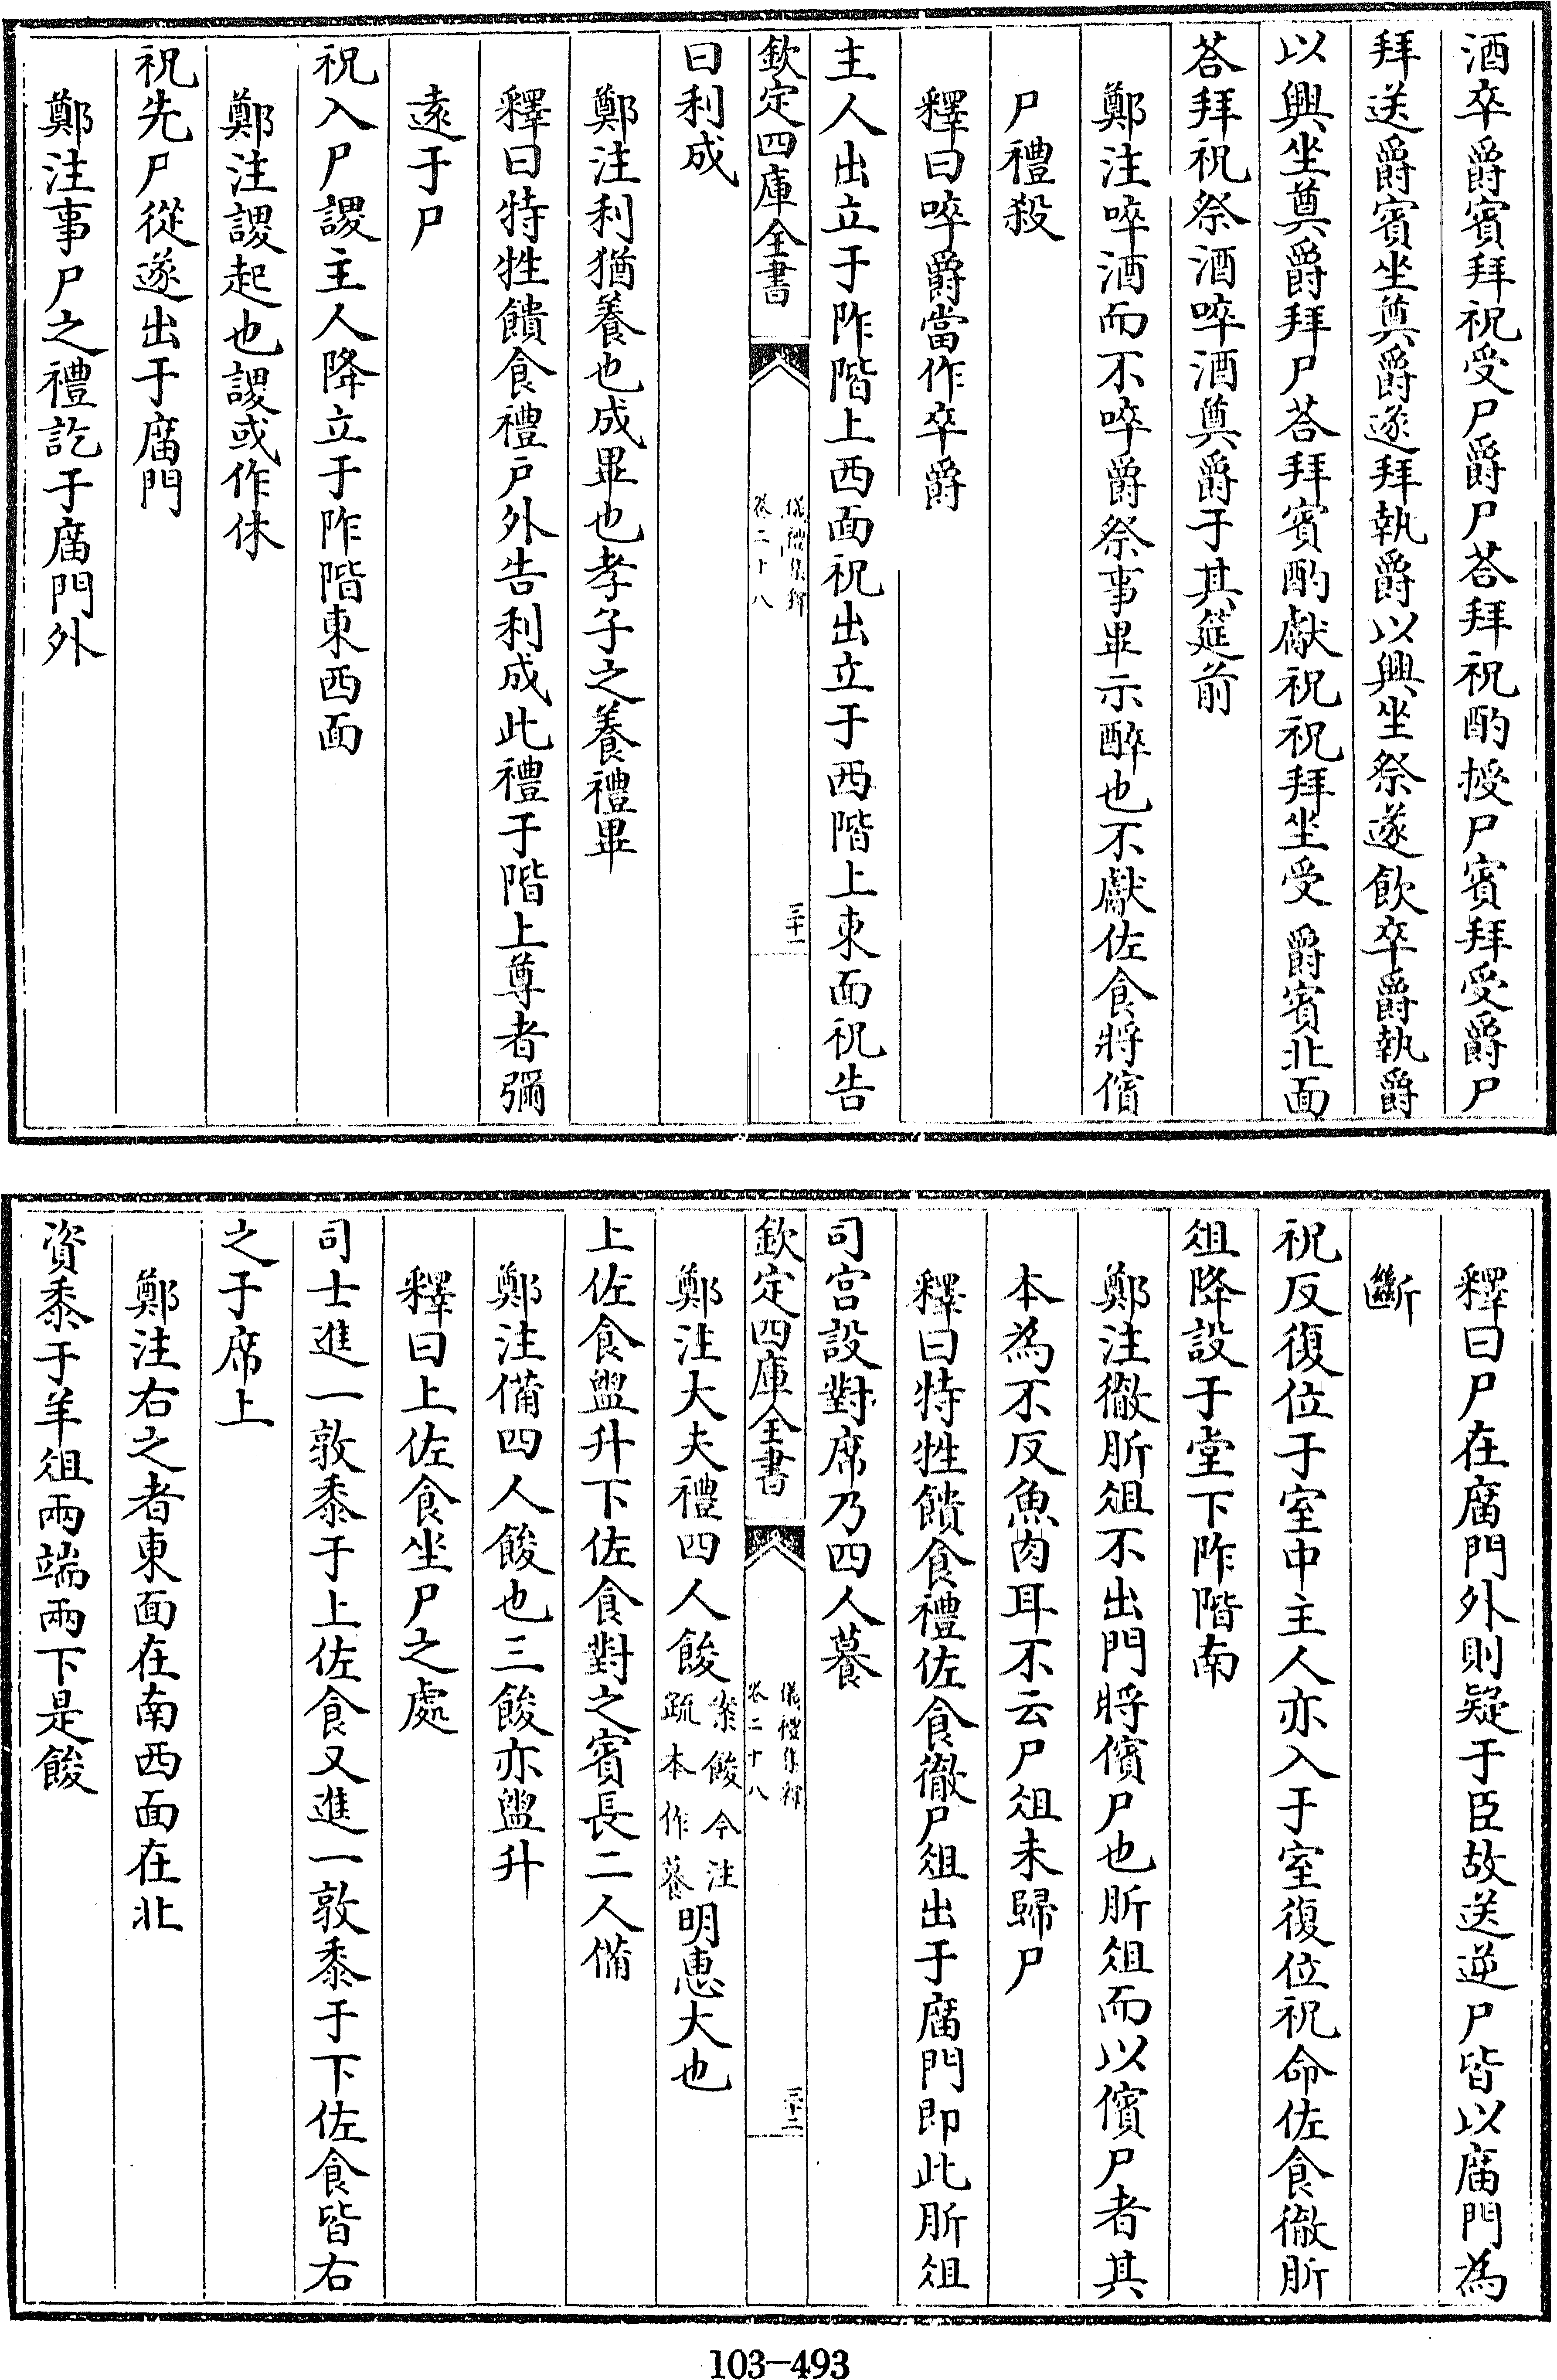 酒卒爵賓拜祝受尸爵尸荅拜祝酌授尸賓拜受爵尸
拜送爵賓坐奠爵遂拜執爵以興坐祭遂飲卒爵執爵
以興坐奠爵拜尸荅拜賓酌獻祝祝拜坐受爵賓北面
荅拜祝祭酒啐酒奠爵于其筵前
鄭注啐酒而不啐爵祭事畢示醉也不獻佐食將儐
尸禮殺
釋曰啐爵當作卒爵
主人出立于阼階上西面祝出立于西階上東面祝告
欽定四庫全書
儀禮集釋
卷二十八
三十一
曰利成
鄭注利猶養也成畢也孝子之養禮畢
釋曰特牲饋食禮戶外告利成此禮于階上尊者彌
逺于尸
祝入尸謖主人降立于阼階東西面
鄭注謖起也謖或作休
祝先尸從遂出于廟門
鄭注事尸之禮訖于廟門外
釋曰尸在廟門外則疑于臣故送逆尸皆以廟門為
斷
祝反復位于室中主人亦入于室復位祝命佐食徹肵
俎降設于堂下阼階南
鄭注徹肵俎不出門將儐尸也肵俎而以儐尸者其
本為不反魚肉耳不云尸俎未歸尸
釋曰特牲饋食禮佐食徹尸俎出于廟門即此肵俎
司宫設對席乃四人䭕
欽定四庫全書
儀禮集釋
卷二十八
三十二
鄭注大夫禮四人餕案餕今注疏本作䭕明惠大也
上佐食盥升下佐食對之賓長二人備
鄭注備四人餕也三餕亦盥升
釋曰上佐食坐尸之處
司士進一敦黍于上佐食又進一敦黍于下佐食皆右
之于席上
鄭注右之者東面在南西面在北
資黍于羊俎兩端兩下是餕
103-493